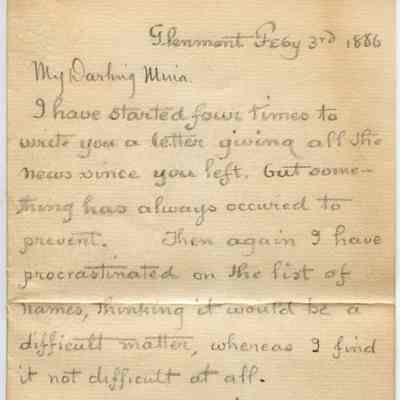 Glenmont Feby 3rd 1886
My Darling Mina.
I have started four times to
write you a letter giving all the
news since you left. but some-
thing has always occured to
prevent. Then again I have
procrastinated on the list of
names, thinking it would be a
difficult matter, whereas I find
it not difficult at all.